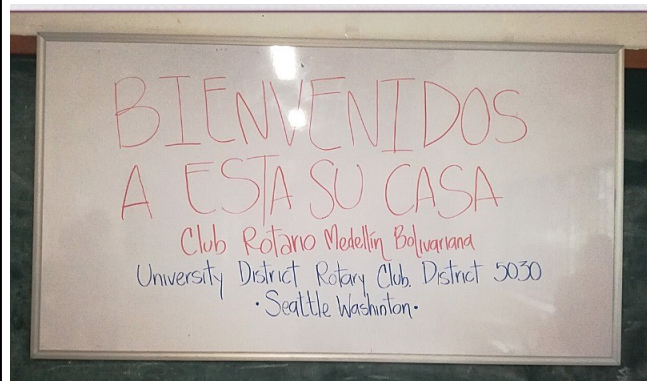 BIENVENIDOS
A ESTA SU CASA
Club Rotario Medellín Bolivariana
University District Rotary Club. District 5030
·Seattle Washinton·